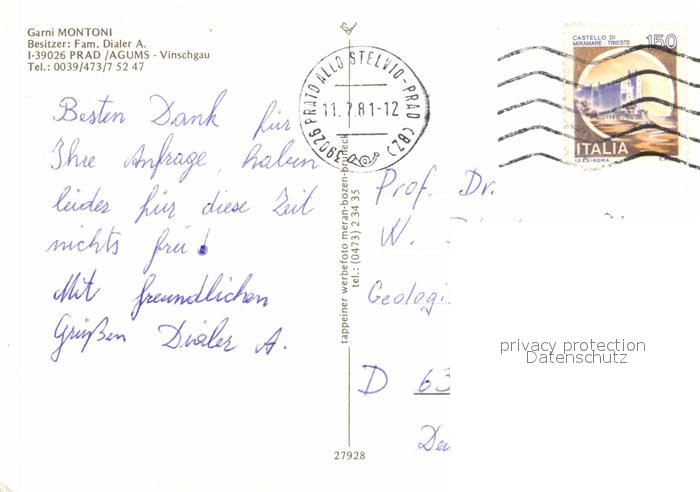 Garni MONTONI
Besitzer: Fam. Dialer A.
I-39026 PRAD /AGUMS - Vinschgau
Tel.: 0039/473/7 52 47
Besten Dank für
Ihre Anfrage, haben
leider für diese Zeit
nichts frei!
Mit freundlichen
Grüßen Dialer A.
39026 PRATO ALLO STELVIO - PRAD (BZ)
11.7.81-12
tappeiner werbefoto meran-bozen-bruneck
tel.: (0473) 2 34 35
27928
CASTELLO DI
MIRAMARE - TRIESTE
150
ITALIA
I.P.Z.S.-ROMA
Prof. Dr.
W.
Geologi
D 63
privacy protection
Datenschutz